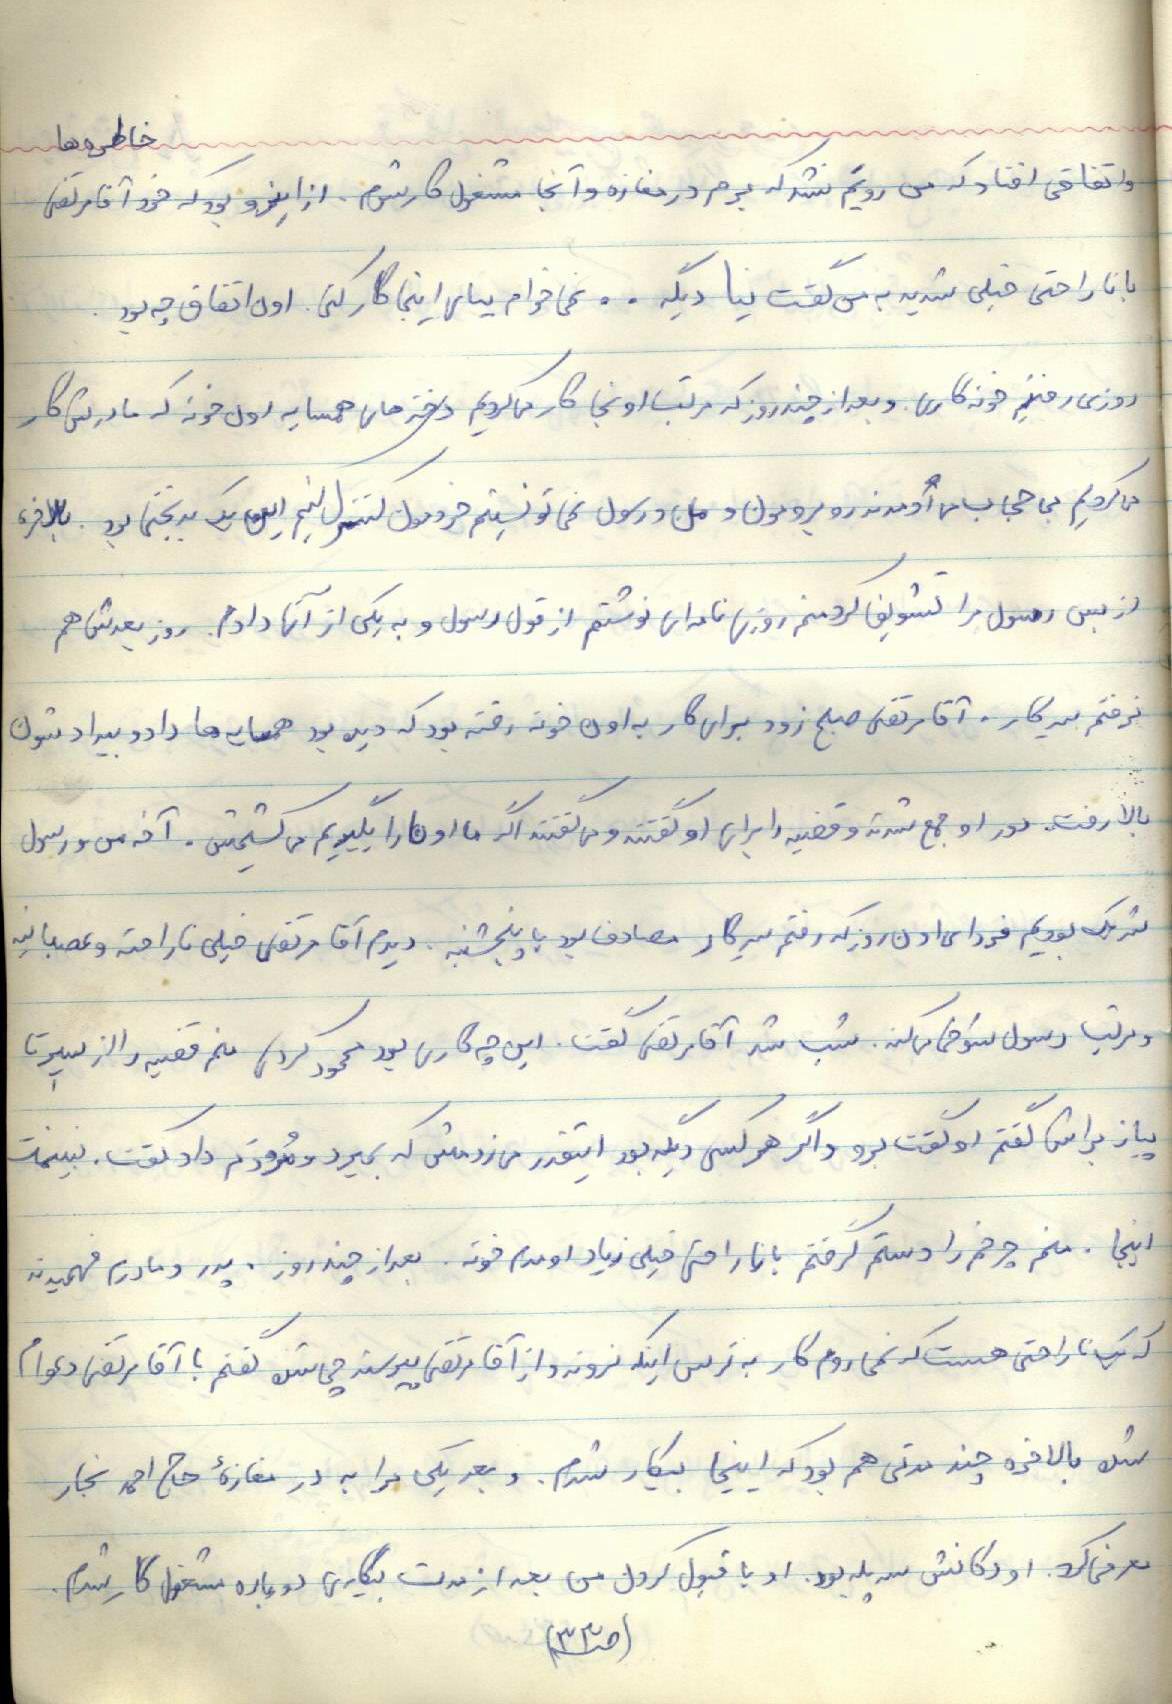 خاطره‌ها
و اتفاقی افتاد که من رویم نشد که برم در مغازه و آنجا مشغول کار شوم. از اینرو بود که خود آقا مرتضی
با ناراحتی خیلی شدید به من گفت نیا دیگه .. نمی‌خوام بیای اینجا کار کنی. اون اتفاق چه بود.
روزی رفتیم خونه کاری. و بعد از چند روز که مرتب اونجا کار می‌کردیم دخترهای همسایه اون خونه که ما درش کار
می‌کردیم بی حجاب می‌آومدند روبرومون و من و رسول نمی‌تونستیم خودمون کنترل کنیم این یک بدبختی بود. بالاخره
از بس رسول مرا تشویق کرد منم روزی نامه‌ای نوشتم از قول رسول و به یکی از آنها دادم. روز بعدش هم
نرفتم سر کار. آقا مرتضی صبح زود برای کار به اون خونه رفته بود که دیده بود همسایه‌ها داد و بیدادشون
بالا رفت. دور او جمع شدند و قضیه را برای او گفتند و می‌گفتند اگر ما اونا را بگیریم می‌کشیمش. آخه من و رسول
شریک بودیم فردای اون روز که رفتم سر کار مصادف بود با پنجشنبه. دیدم آقا مرتضی خیلی ناراحته و عصبانیه
و مرتب رسول شوخی می‌کنه. شب شد آقا مرتضی گفت. این چه کاری بود محمود کردی منم قضیه را از سیر تا
پیاز براش گفتم او گفت برو و اگر هر کسی دیگه بود اینقدر می‌زدمش که بمیرد و مزدم داد گفت. نبینمت
اینجا. منم چرخم را دستم گرفتم با ناراحتی خیلی زیاد اومدم خونه. بعد از چند روز. پدر و مادرم فهمیدند
که یک ناراحتی هست که نمی‌روم کار به ترس اینکه نروند و از آقا مرتضی بپرسند چی شده گفتم با آقا مرتضی دعوام
شده بالاخره چند مدتی هم بود که اینجا بیکار شدم. و بعد یکی مرا به در مغازهٔ حاج احمد نجار
معرفی کرد. او دکانش سه پله بود. او با قبول کردن من بعد از مدت بیکاری دوباره مشغول کار شدم.
(ص ۳۳)